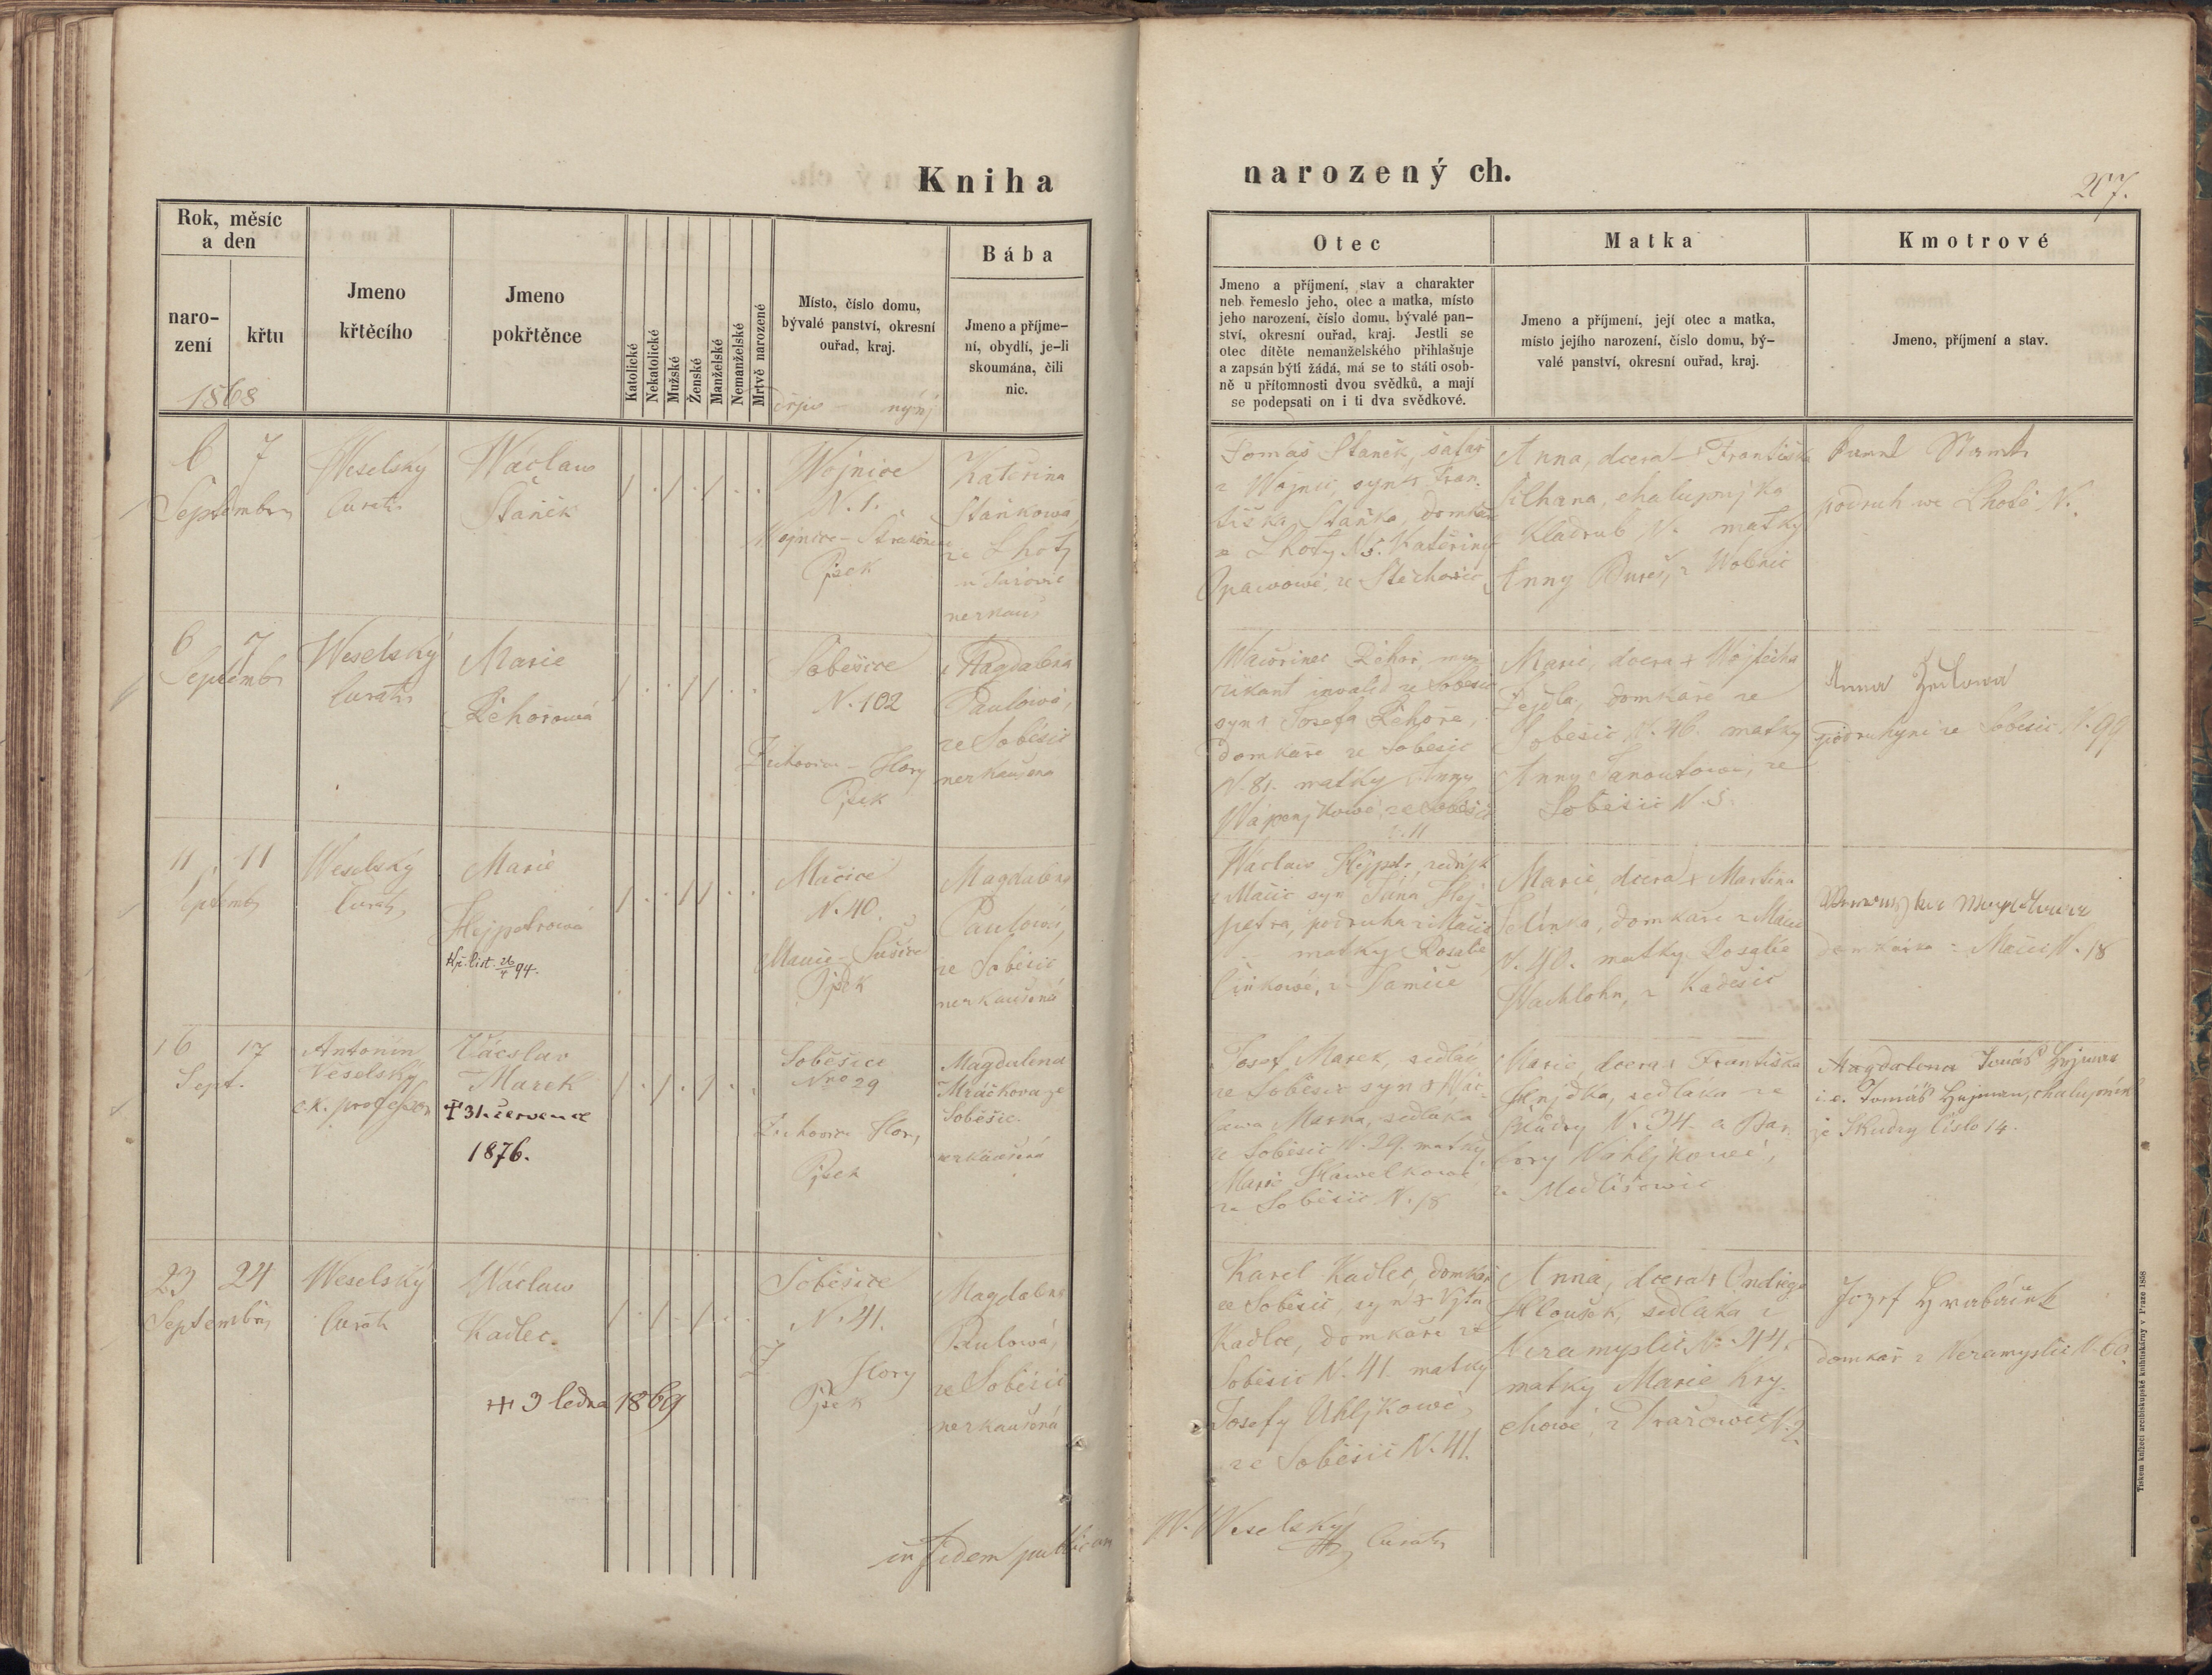 Kniha
narozených.
207.
Rok, měsíc
a den
naro-
zení
křtu
1868
Jmeno
křtěcího
Jmeno
pokřtěnce
Katolické
Nekatolické
Mužské
Ženské
Manželské
Nemanželské
Mrtvě narozené
Místo, číslo domu,
bývalé panství, okresní
ouřad, kraj.
nynj
Bába
Jmeno a příjme-
ní, obydlí, je-li
skoumána, čili
nic.
Otec
Jmeno a příjmení, stav a charakter
neb řemeslo jeho, otec a matka, místo
jeho narození, číslo domu, bývalé pan-
ství, okresní ouřad, kraj. Jestli se
otec dítěte nemanželského přihlašuje
a zapsán býti žádá, má se to státi osob-
ně u přítomnosti dvou svědků, a mají
se podepsati on i ti dva svědkové.
Matka
Jmeno a příjmení, její otec a matka,
místo jejího narození, číslo domu, bý-
valé panství, okresní ouřad, kraj.
Kmotrové
Jmeno, příjmení a stav.
6 7
Septembr
Weselský
Curatus
Waclaw
Staněk
Wojnice
N. 1.
Pjsek
Kateřina
Staňkowá
ze Lhoty
Tomáš Staněk, šafář
z Wojnic, syn + Fran-
tiška Staňka, domkáře
ze Lhoty N 5. Kateřiny
ze Štěchowic
Anna, dcera + Františka
Šilhana, chalupnjka
Kladrub N. matky
Anny z Wolenic
podruh we Lhotě N.
6 7
Septembr
Weselský
Curatus
Marie
Řehořowá
Soběšice
N. 102
Žichovice - Hory
Pjsek
Magdalena
Paulowá,
ze Soběšic
nezkaušena
Wawřinec Řehoř, mu-
zikant invalid ze Soběšic
syn + Josefa Řehoře,
domkáře ze Soběšic
N. 81. matky Anny
Wápenjkowé, ze Soběšic
N. 11
Marie, dcera + Wojtěcha
domkáře ze
Soběšic, N. 46. matky
Anny Janoutowé, ze
Soběšic N. 5.
Anna
podruhyně ze Soběšic N. 99
11 11
Septembr
Weselský
Curatus
Marie
Hejpetrowá
Kř. list. 26/4 94.
Mačice
N. 40.
Sušice
Pjsek
Magdalena
Paulowá,
ze Soběšic
nezkaušená
Waclaw Hejpetr, zednjk
z Mačic syn Jana Hej-
petra, podruha z Mačic
matky Rosalie
Marie, dcera + Martina
Jelínka, domkáře z Mačic
N. 40. matky Rosalie
z Kadešic
domkářka z Mačic N. 18
16 17
Sept.
Antonín
Veselský
c.k. professor
Václav
Marek
† 31. července
1876.
Soběšice
Nro 29
Žichovice Hory
Pjsek
Magdalena
Mráčkova ze
Soběšic.
nezkaušená
Josef Marek, sedlák
ze Soběšic syn + Wác-
lawa Marka, sedláka
ze Soběšic N. 29. matky
Marie Hawelkowé
ze Soběšic N. 18
Marie dcera + Františka
Hnjdka, sedláka ze
N. 34. a Bar-
bory Wáhljkowé,
z Modlišowic
Magdalena Tomáš Hejman
i.e. Tomáš Hejman, chalupník
číslo 14.
23 24
Septembris
Weselský
Curatus
Wáclaw
Kadlec.
++ 3 ledna 1869
Soběšice
N. 41.
Ž Hory
Pjsek
Magdalena
Paulowá,
ze Soběšic
nezkaušená
Karel Kadlec, domkář
ze Soběšic, syn + Vjta
Kadlce, domkáře ze
Soběšic N. 41. matky
Josefy Uhljkowé,
ze Soběšic N. 41.
Anna, dcera + Ondřege
Hloušek, sedláka z
Nezamyslic N. 44.
matky Marie Kry-
chowé, z Dražowic N. 2
Jozef Hrabáček
domkář z Nezamyslic N. 60.
in fidem publicam
W. Weselský
Curatus
Tiskem knížecí arcibiskupské knihtiskárny v Praze 1858